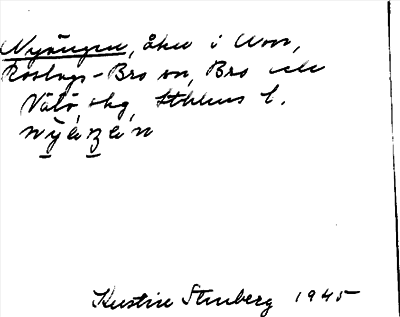 Nyängen, åker i Uvvs,
Roslags-Bro sn, Bro och
Vätö shg, Sthlms l.
Kerstin Stenberg 1945